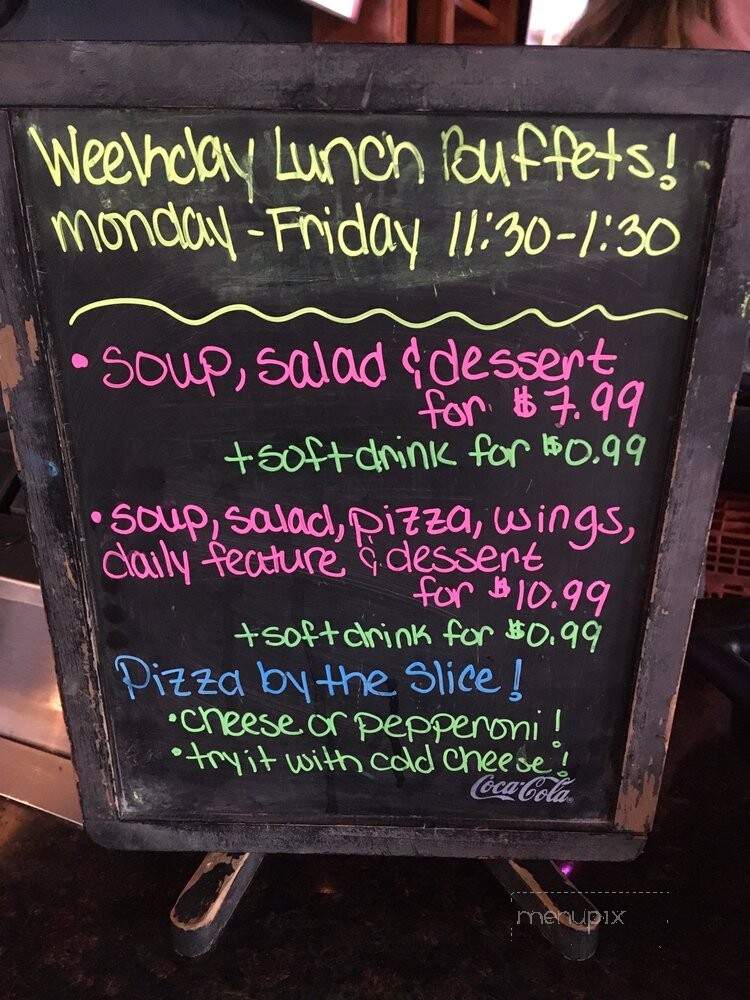 Weekday Lunch Buffets!
monday - Friday 11:30-1:30
• soup, salad & dessert
for $7.99
+ soft drink for $0.99
• soup, salad, pizza, wings,
daily feature & dessert
for $10.99
+ soft drink for $0.99
Pizza by the Slice!
• cheese or pepperoni!
• try it with cold cheese!
Coca-Cola
menupix